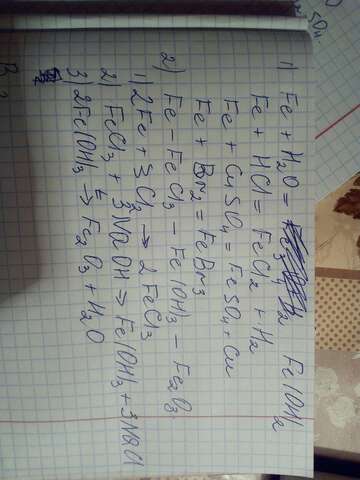 1) Fe + H2O = Fe(OH)2
Fe + HCl = FeCl2 + H2
Fe + CuSO4 = FeSO4 + Cu
Fe + Br2 = FeBr3
2) Fe - FeCl3 - Fe(OH)3 - Fe2O3
1) 2Fe + 3Cl2 → 2FeCl3
2) FeCl3 + 3NaOH → Fe(OH)3 + 3NaCl
3) 2Fe(OH)3 t→ Fe2O3 + H2O